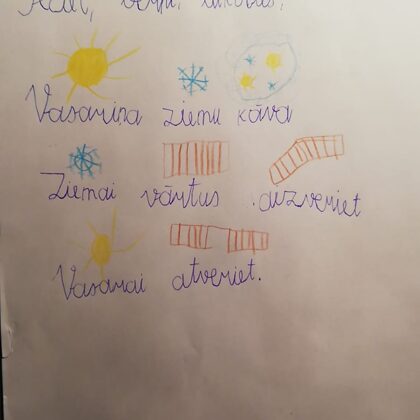 Vasariņa ziemu kāva
Ziemai vārtus aizveriet
Vasarai atveriet.